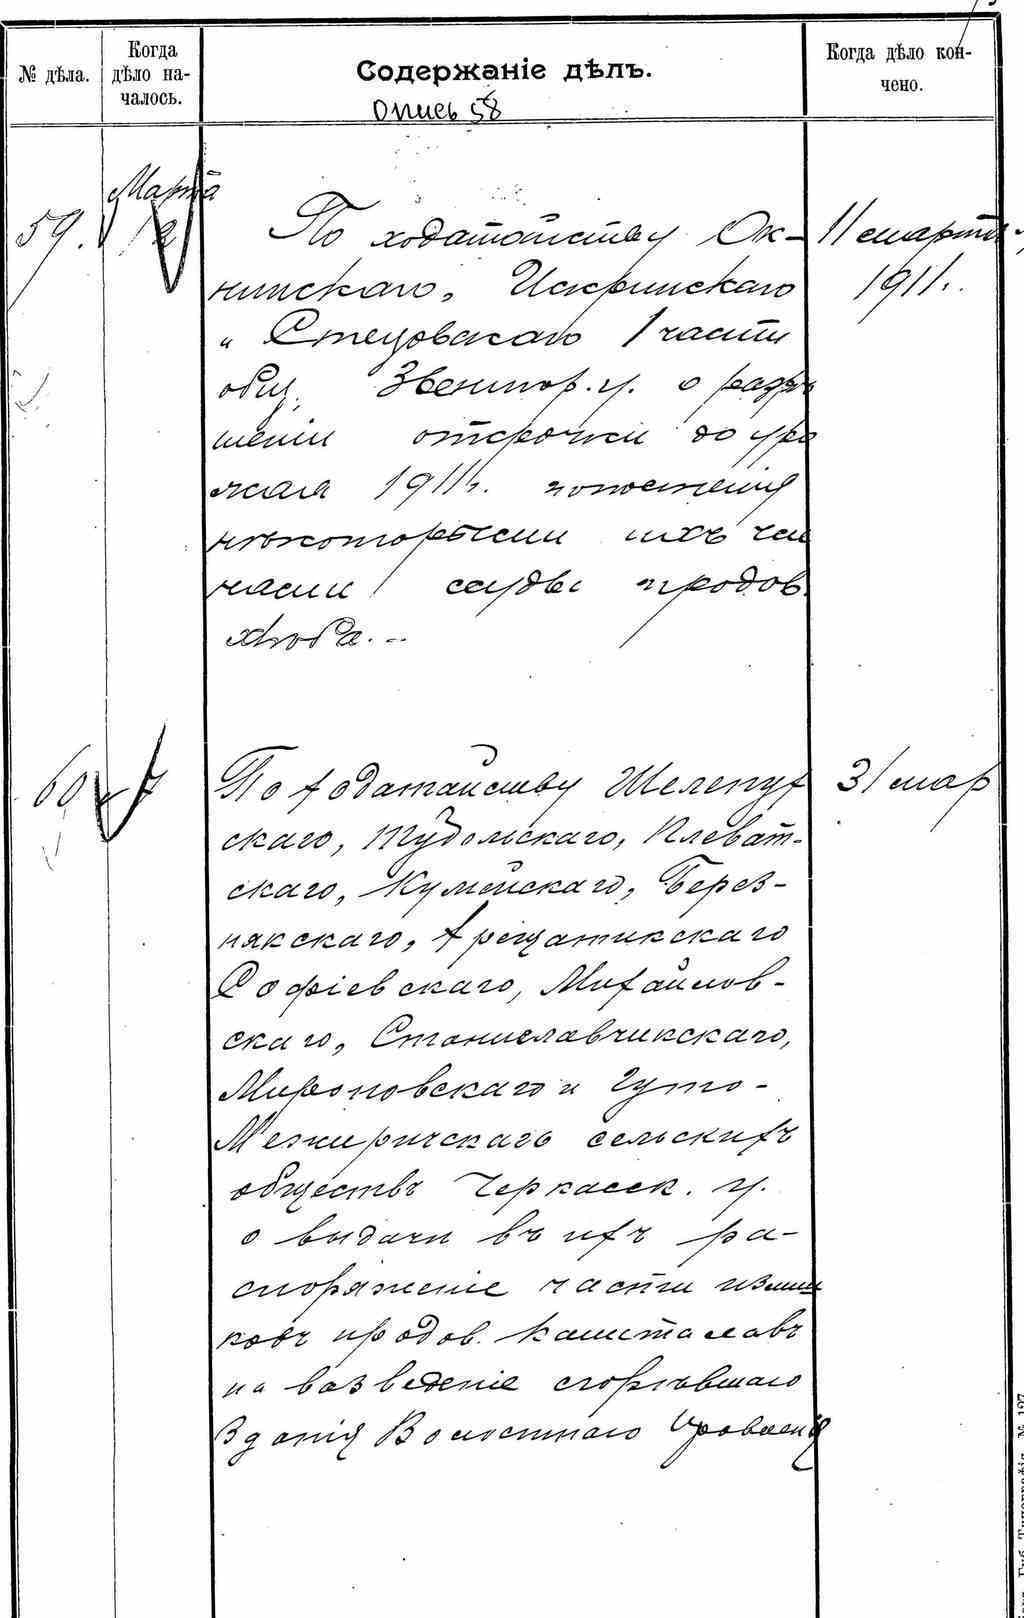 № дѣла.
Когда
дѣло на-
чалось.
Содержаніе дѣлъ.
Опись 58
Когда дѣло кон-
чено.
Марта
59. 12
По ходатайству Ок-
нинскаго, Искринскаго
и Стецовскаго 1 части
общ. Звенигор. у. о разрѣ
шеніи отсрочки до уро
жая 1911 г. пополненія
нѣкоторыми ихъ чле
нами ссуды продов.
хлѣба.
11 марта
1911 г.
60 7
По ходатайству Шелепух
скаго, Тубольскаго, Плеват-
скаго, Кумейскаго, Берез-
някскаго, Хрещатикскаго
Софіевскаго, Михайлов-
скаго, Станиславчикскаго,
Мироновскаго и Гуто-
Межиричскаго сельскихъ
обществъ Черкасск. у.
о выдачи въ ихъ ра-
споряженіе части излиш
ковъ продов. капиталовъ
на возведеніе сгорѣвшаго
зданія Волостнаго Правленія
31 мар
Губ. Типографія. № 197